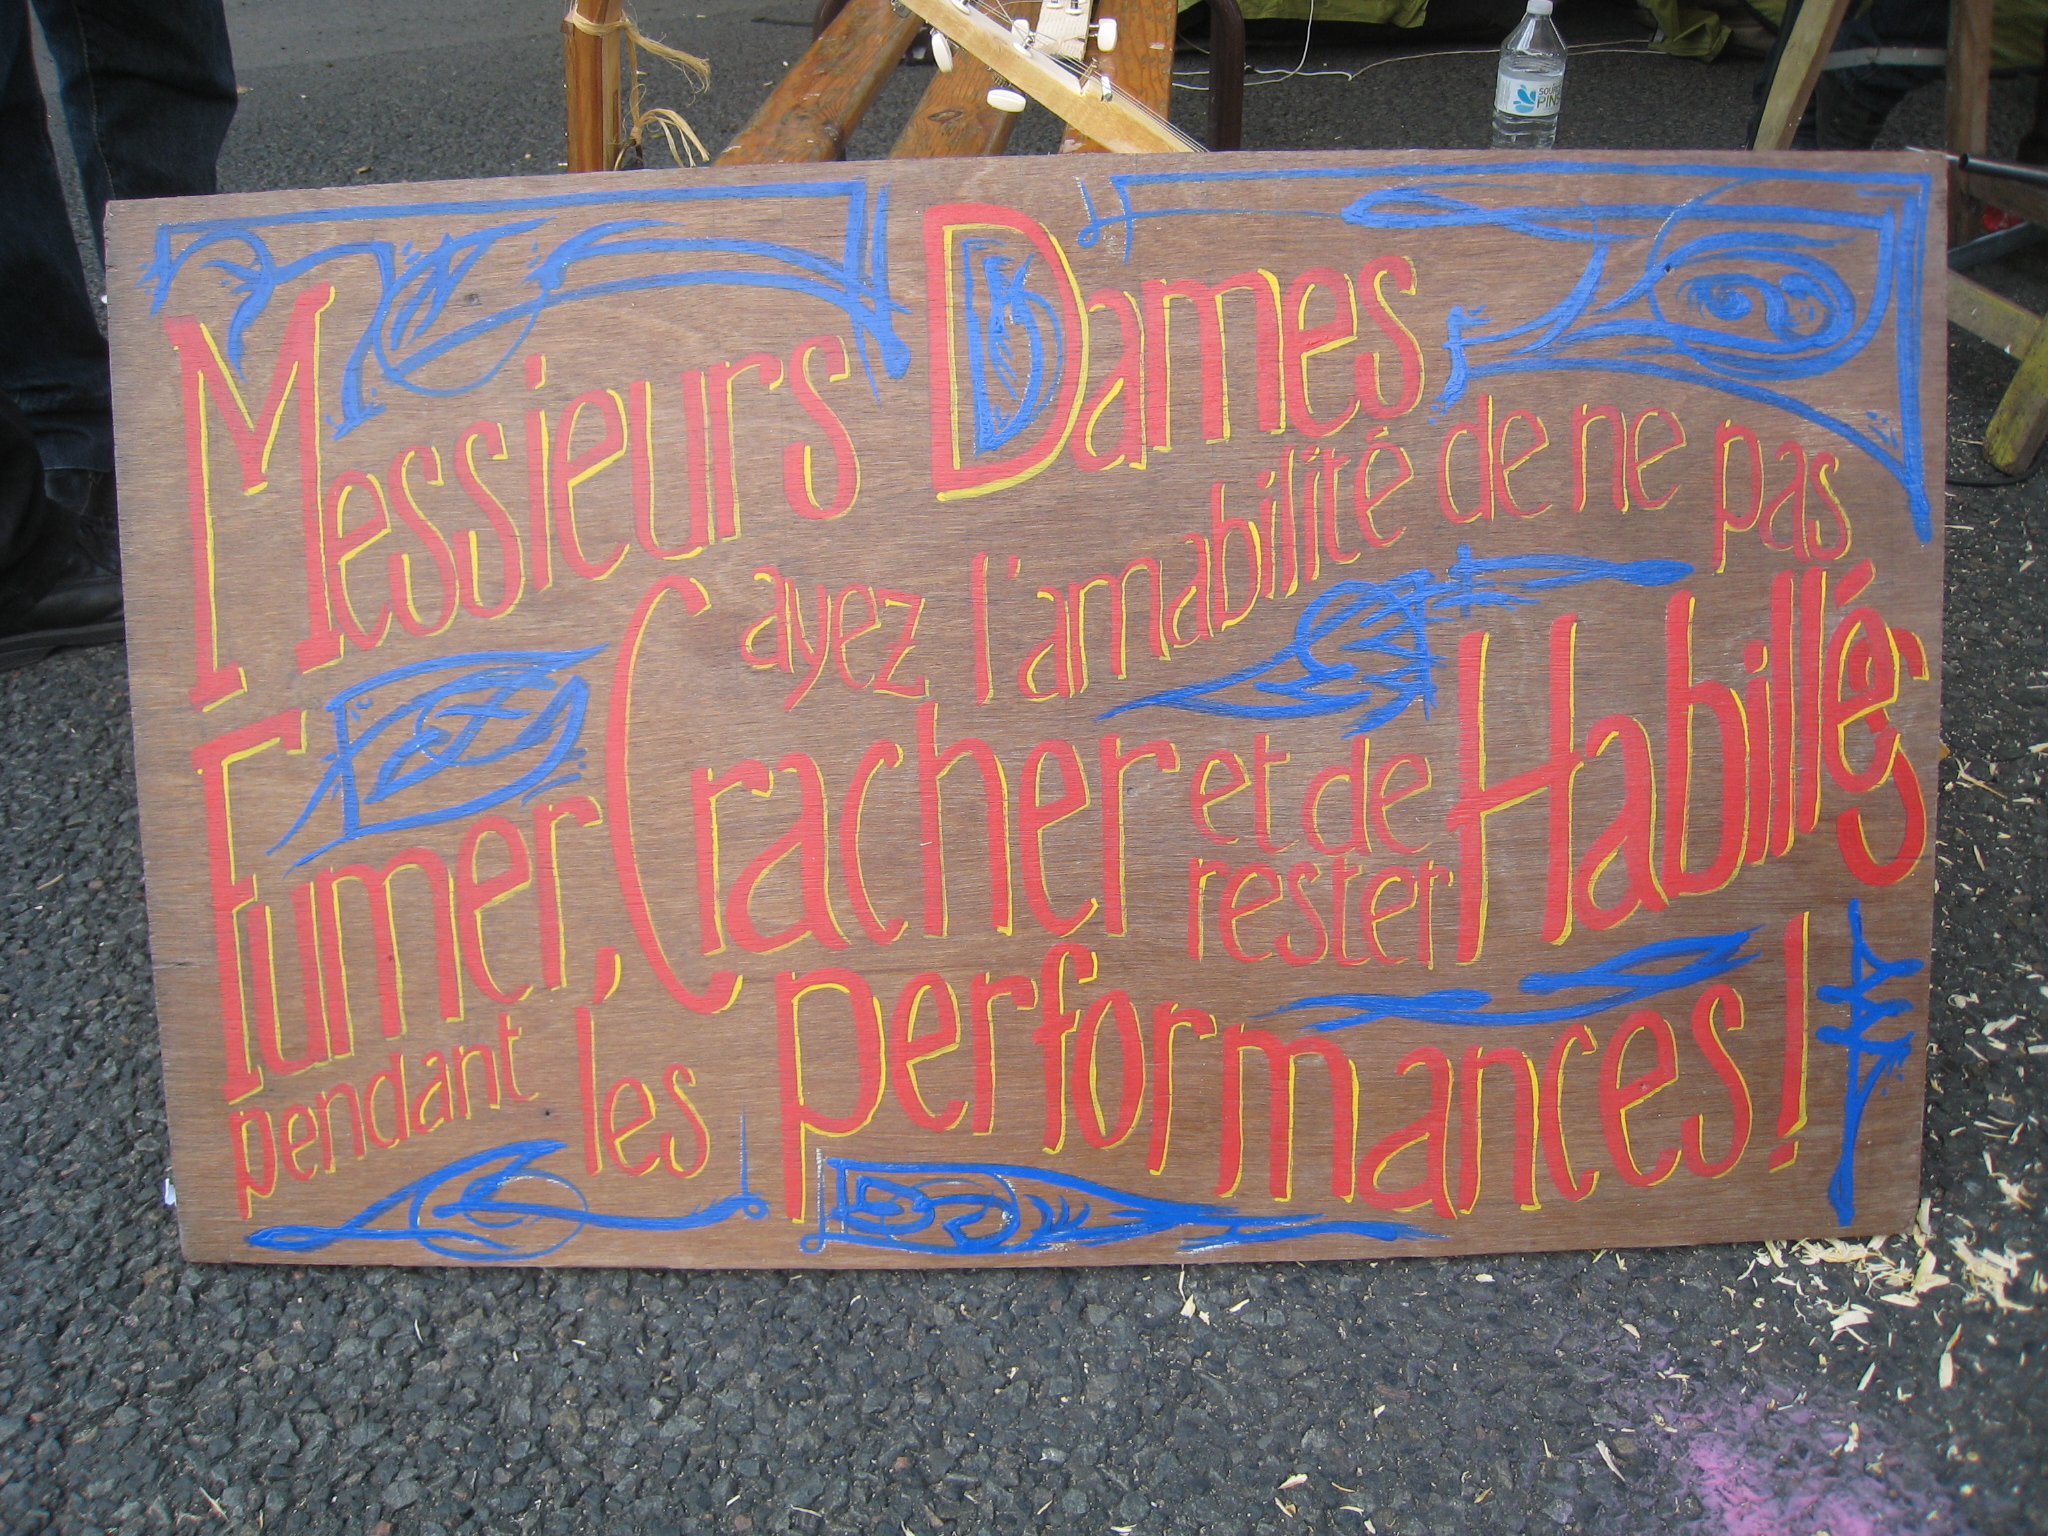 Messieurs Dames
ayez l'amabilité de ne pas
Fumer, Cracher et de
rester Habillés
pendant les performances!